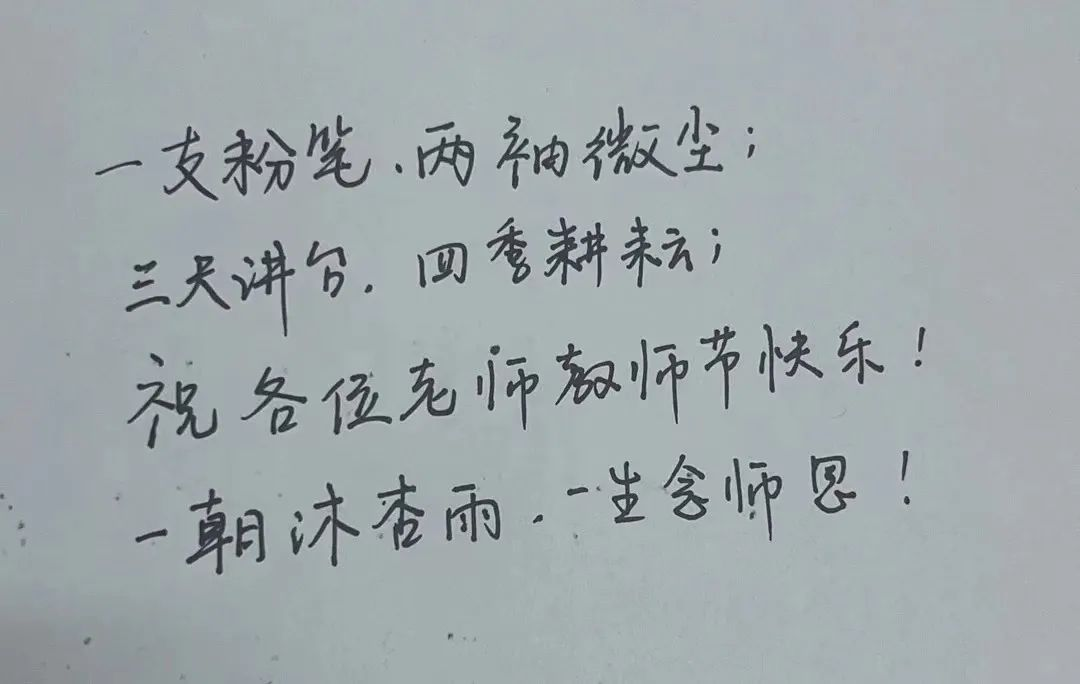 一支粉笔、两袖微尘；
三尺讲台、四季耕耘；
祝各位老师教师节快乐！
一朝沐杏雨、一生念师恩！